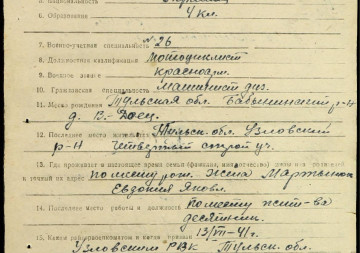 5. Национальность
6. Образование 4 кл.
7. Военноучетная специальность № 26
8. Должностная квалификация Мотоциклист
9. Военное звание красноарм.
10. Гражданская специальность машинист
11. Место рождения Тульская обл. Бабынинский р-н
д. В.-
12. Последнее место Тульск. обл. Узловский
р-н Четвертый строй уч.
13. Где проживает в настоящее время семья (фамилия,
и точный их адрес по месту рот. Жена
Евдокия Яковл.
14. Последнее место работы и должность по месту жит-ва
десятник.
15. Каким райвоенкоматом и когда призван 13/VII-41 г.
Узловским РВК Тульск. обл.